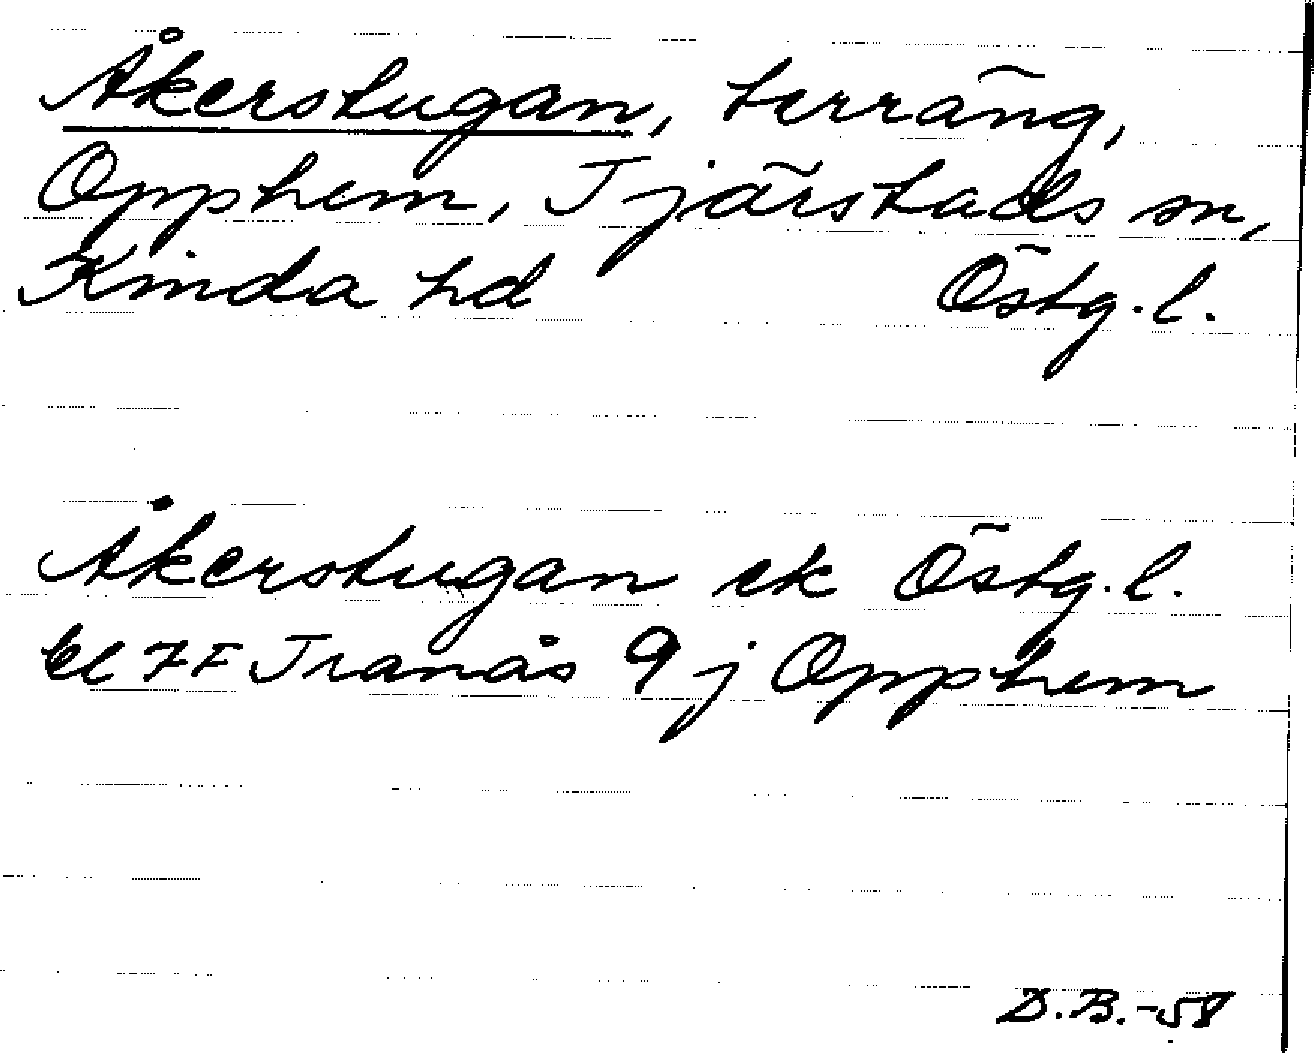 Åkerstugan, terräng,
Opphem, Tjärstads sn,
Kinda hd Östg.l.
Åkerstugan ek Östg.l.
bl 7F Tranås 9j Opphem
D.B.-58